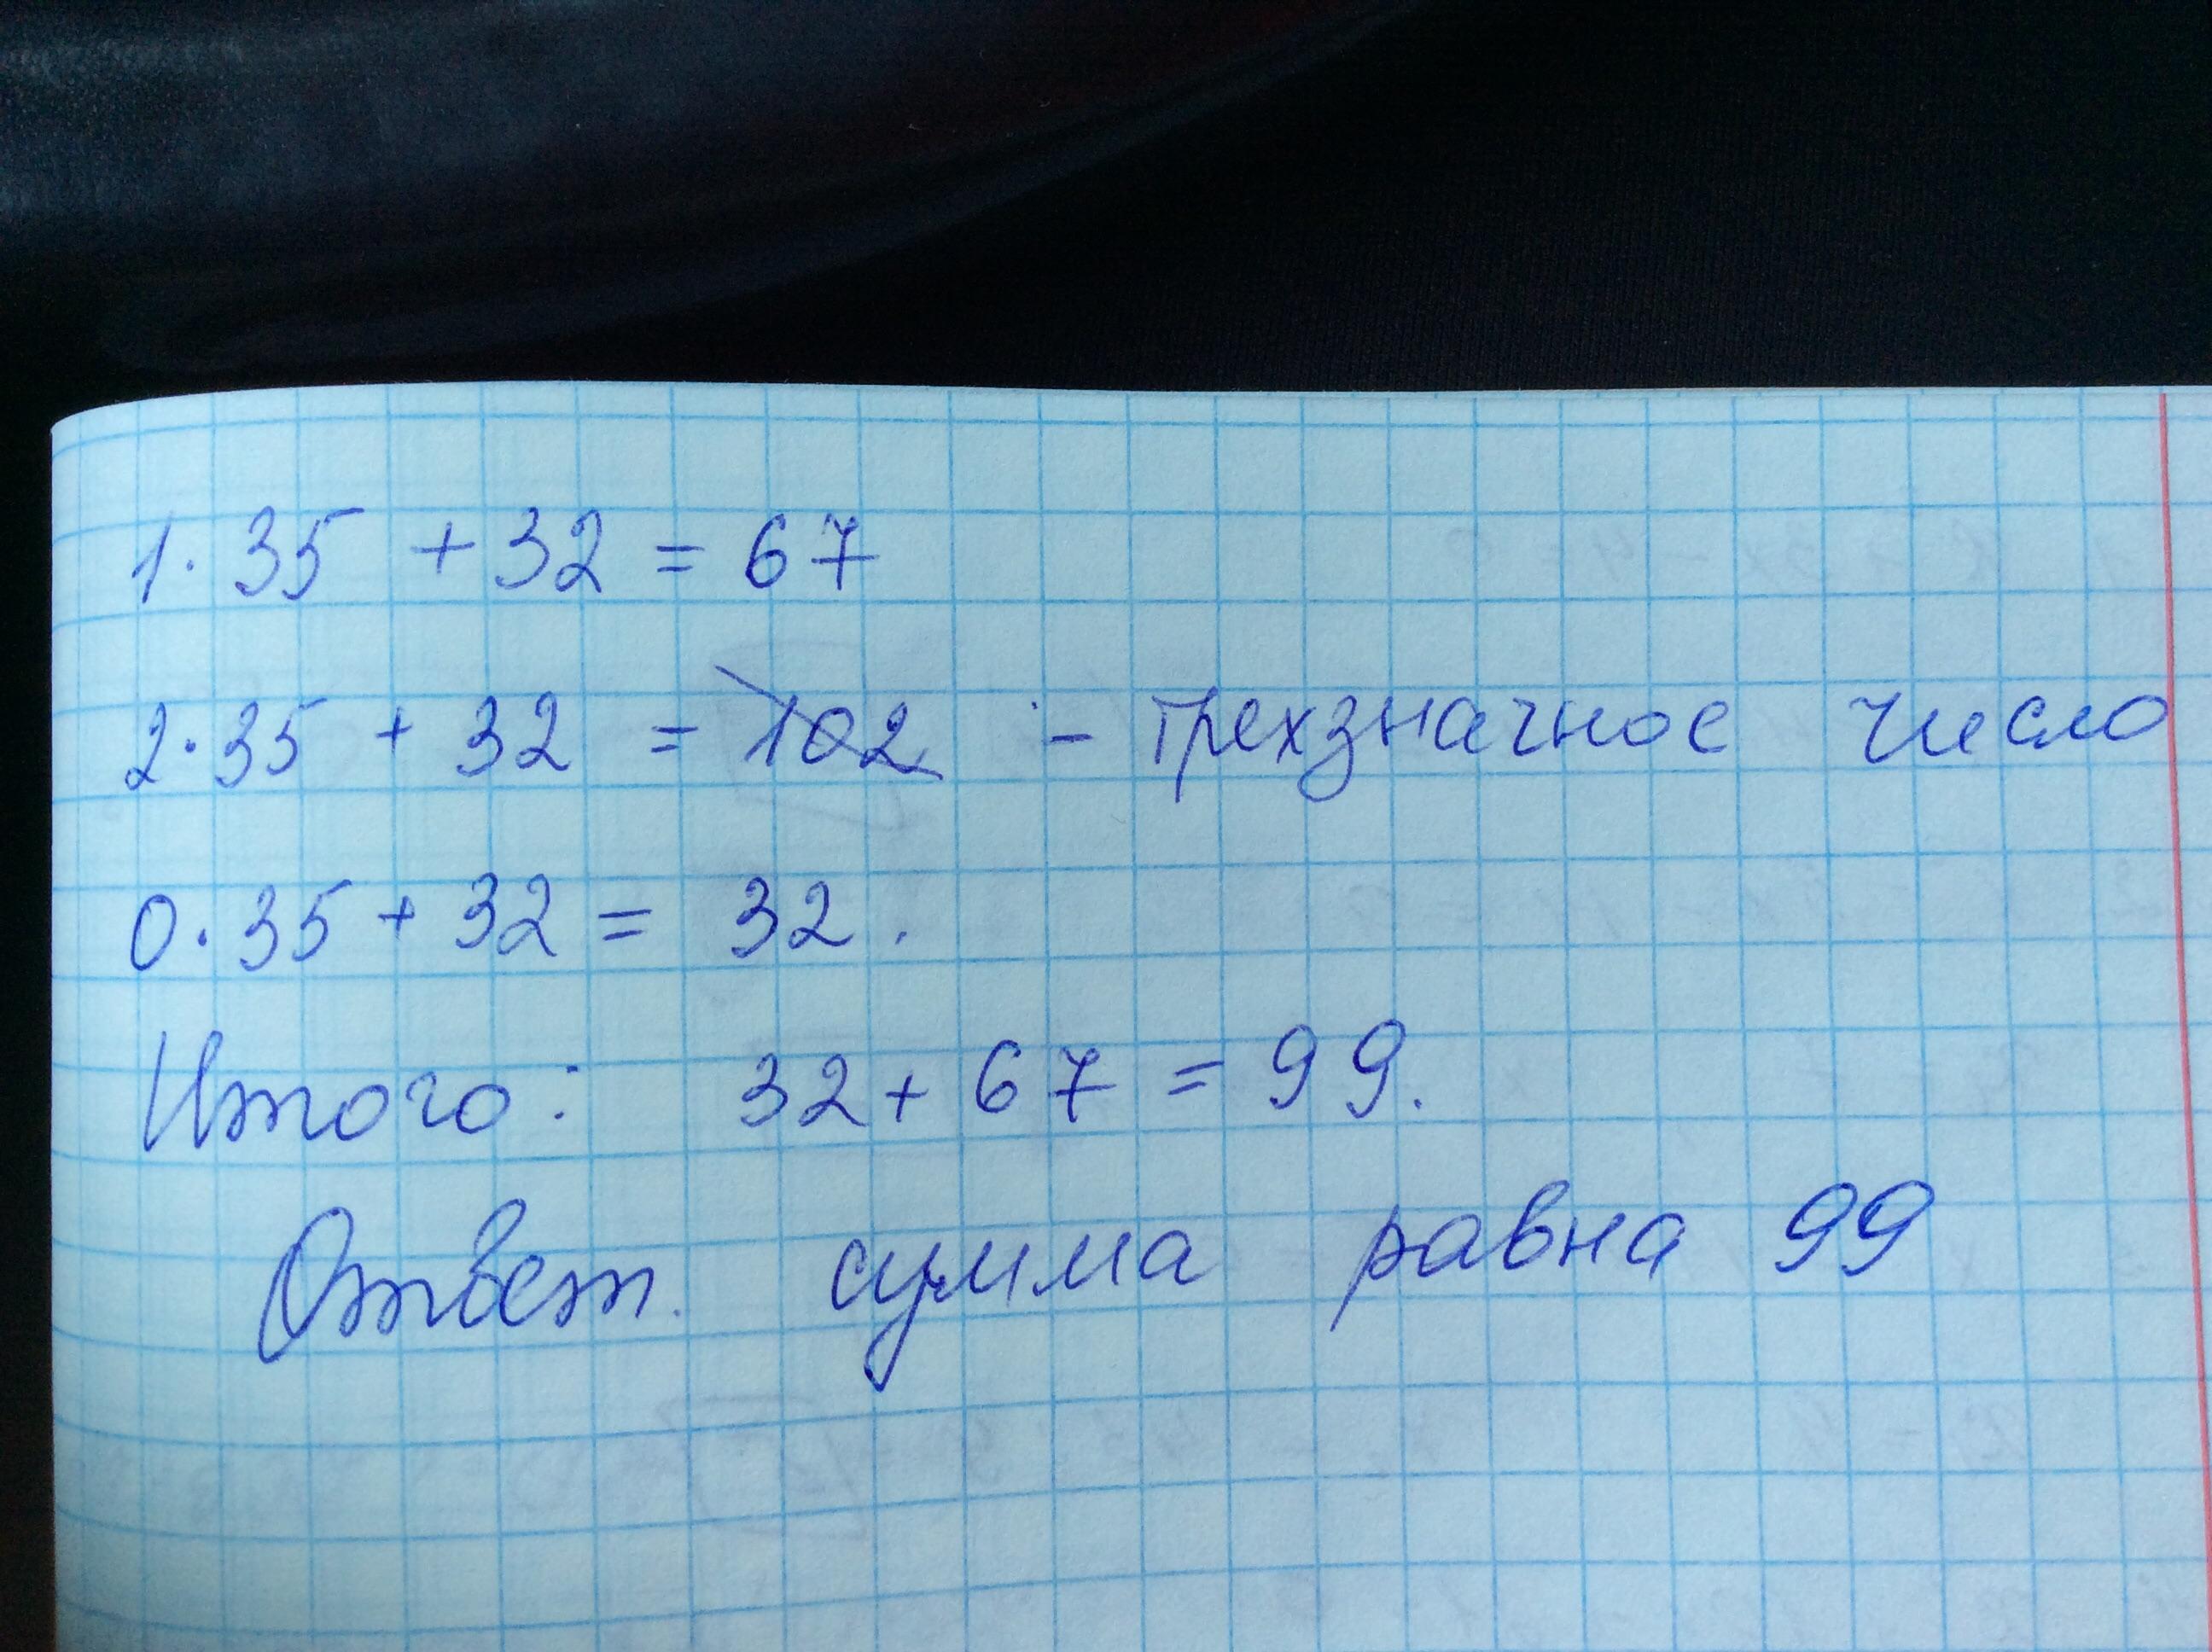 1·35 + 32 = 67
2·35 + 32 = 102 - трехзначное число
0·35 + 32 = 32.
Итого: 32 + 67 = 99.
Ответ. сумма равна 99